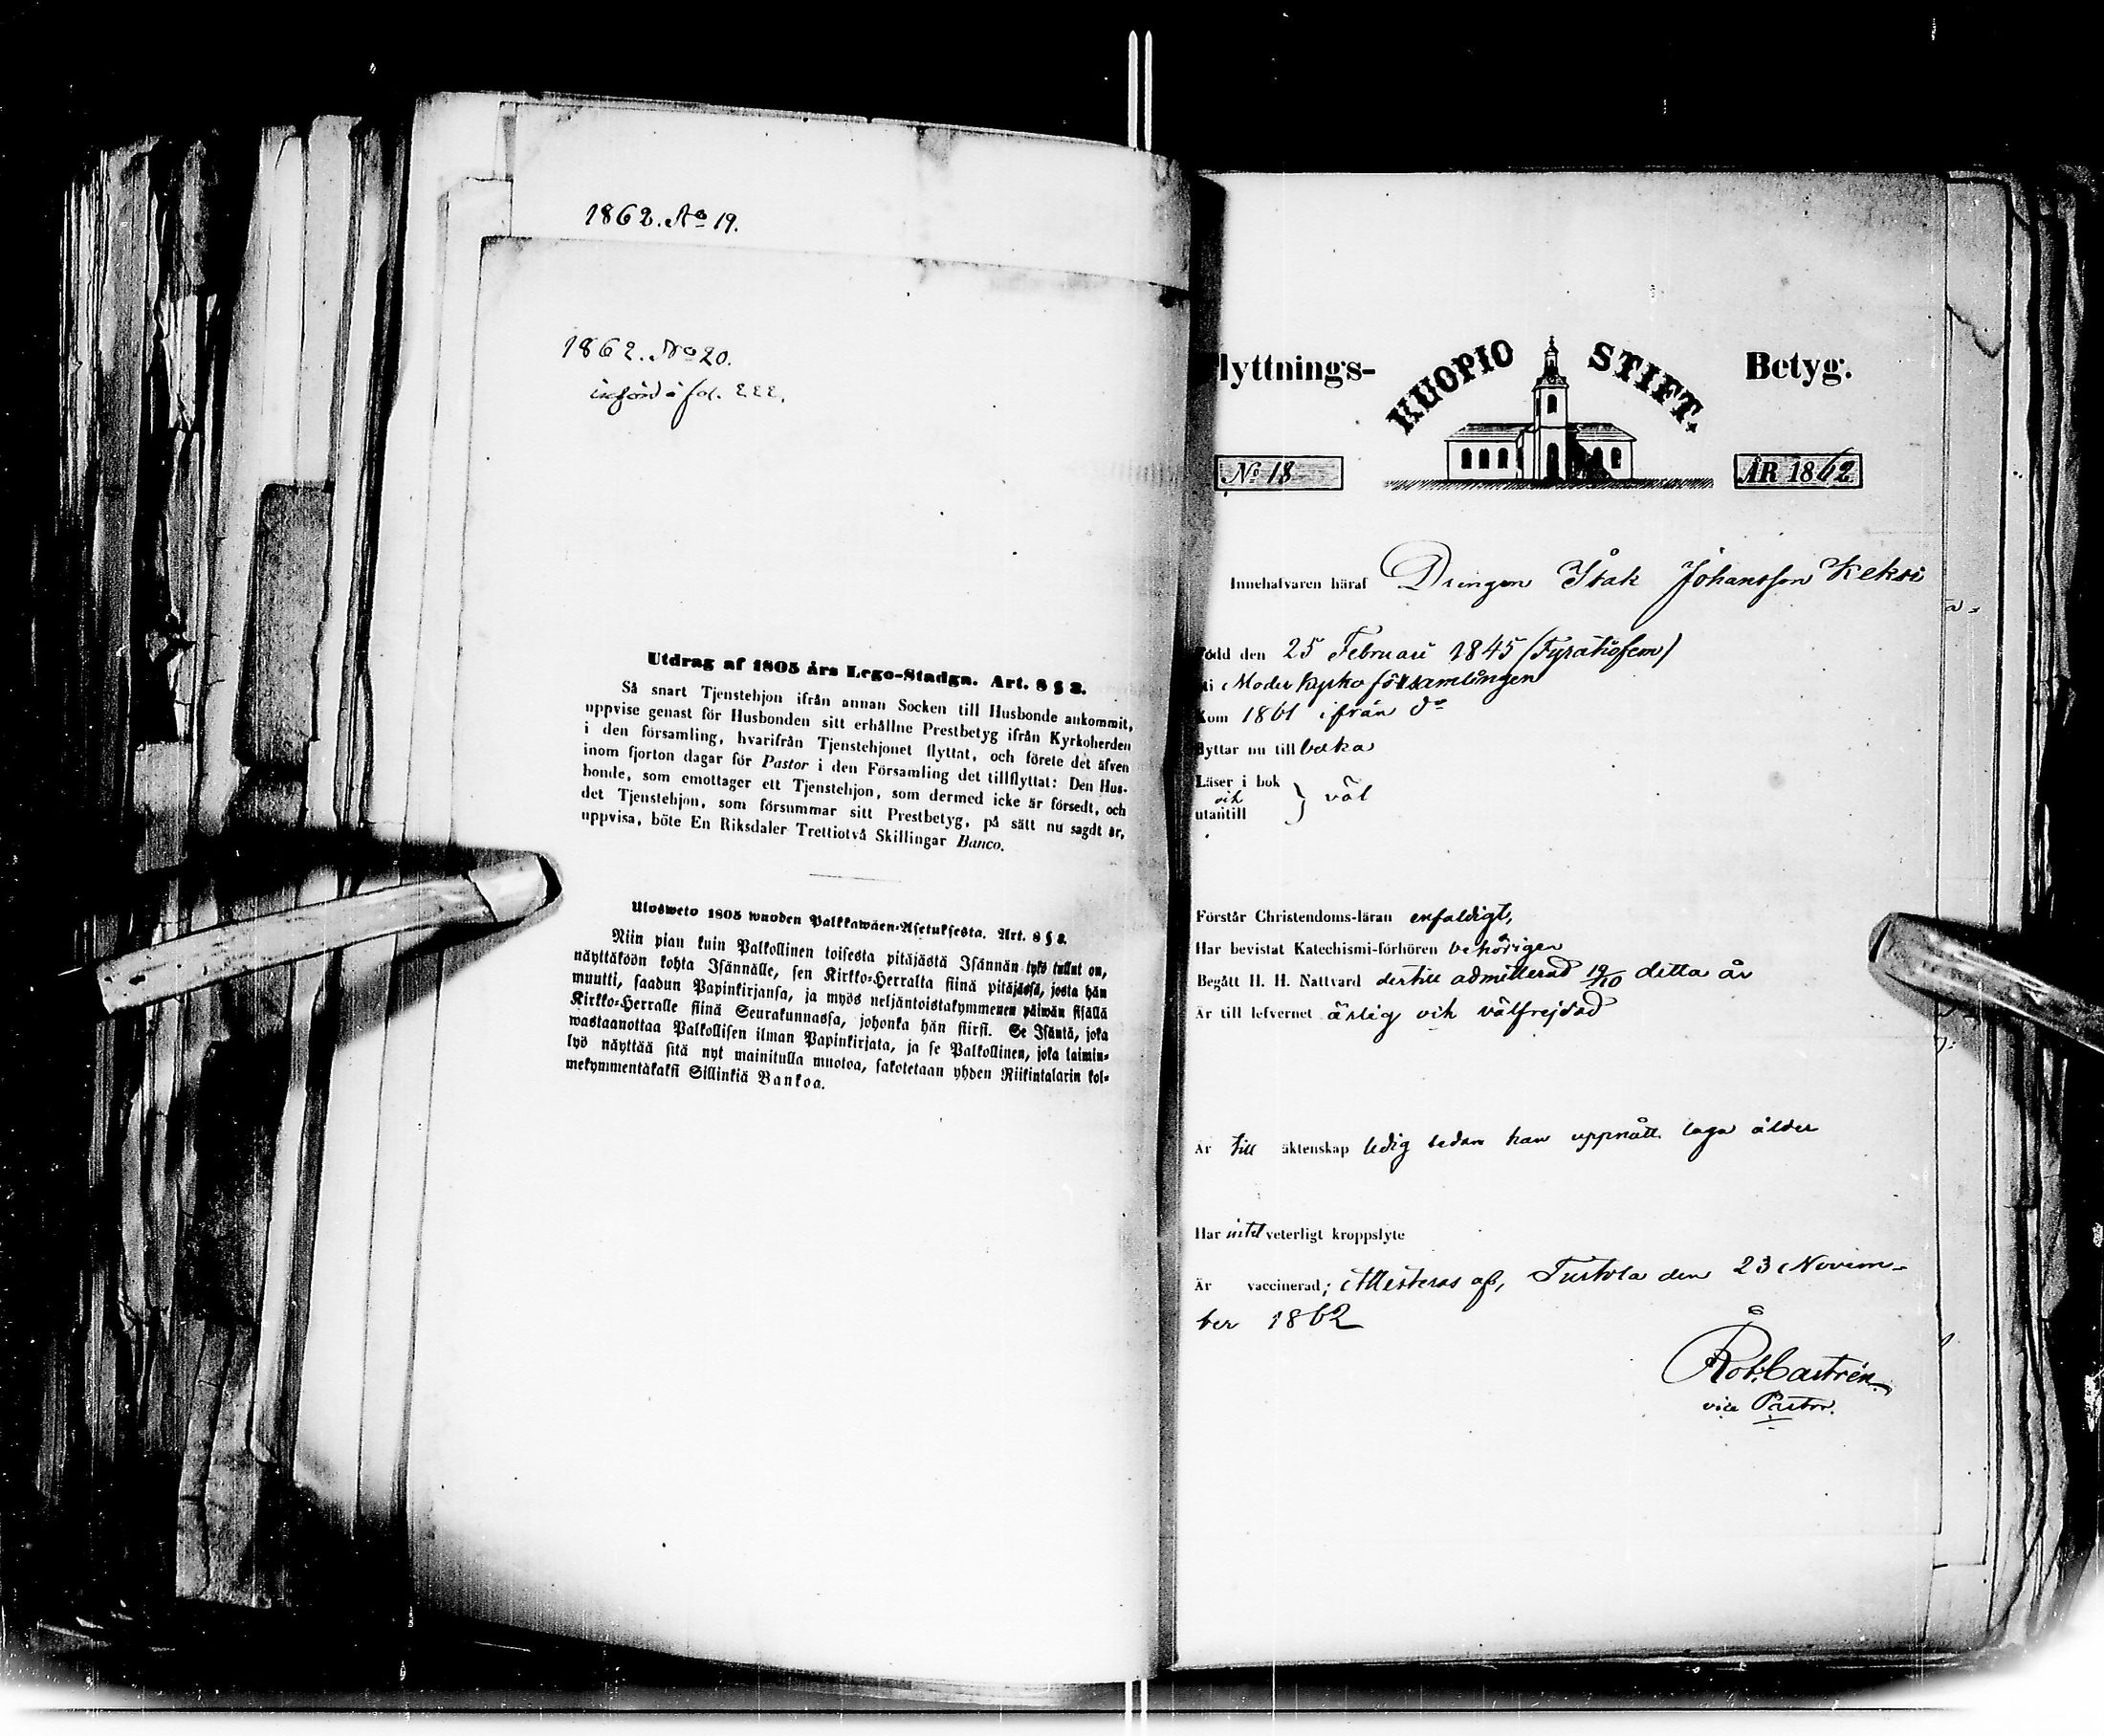 1862. No 19.
1862. No 20.
införd å fol. 222.
Utdrag af 1805 års Lego-Stadga. Art. 8 § 2.
Så snart Tjenstehjon ifrån annan Socken till Husbonde ankommit,
uppvise genast för Husbonden sitt erhållne Prestbetyg ifrån Kyrkoherden
i den församling, hvarifrån Tjenstehjonet flyttat, och förete det äfven
inom fjorton dagar för Pastor i den Församling det tillflyttat: Den Hus-
bonde, som emottager ett Tjenstehjon, som dermed icke är försedt, och
det Tjenstehjon, som försummar sitt Prestbetyg, på sätt nu sagdt är,
uppvisa, böte En Riksdaler Trettiotvå Skillingar Banco.
Ulosweto 1805 wuoden Palkkawäen-Asetuksesta. Art. 8 § 2.
Niin pian kuin Palkollinen toisesta pitäjästä Isännän tykö tullut on,
näyttäköön kohta Isännälle, sen Kirkko-Herralta siinä pitäjässä, josta hän
muutti, saadun Papinkirjansa, ja myös neljäntoistakymmenen päiwän sisällä
Kirkko-Herralle siinä Seurakunnassa, johonka hän siirsi. Se Isäntä, joka
wastaanottaa Palkollisen ilman Papinkirjata, ja se Palkollinen, joka laimin-
lyö näyttää sitä nyt mainitulla muotoa, sakotetaan yhden Riikintalarin kol-
mekymmentäkaksi Sillinkiä Bankoa.
lyttnings- KUOPIO STIFT. Betyg.
No 18 ÅR 1862
Innehafvaren häraf Drängen Isak Johansson Keksi
född den 25 Februari 1845
i Moderkyrko församlingen
Kom 1861 ifrån do
flyttar nu till baka
Läser i bok
och } väl
utantill
Förstår Christendoms-läran enfaldigt,
Har bevistat Katechismi-förhören behörigen
Begått H. H. Nattvard dertill admitterad 19/10 detta år
Är till lefvernet ärlig och välfrejdad
Är till äktenskap ledig sedan han uppnått laga ålder
Har intet veterligt kroppslyte
Är vaccinerad; Attesteras af, Turtola den 23 Novem-
ber 1862
Rob. Castrén.
vice Pastor.